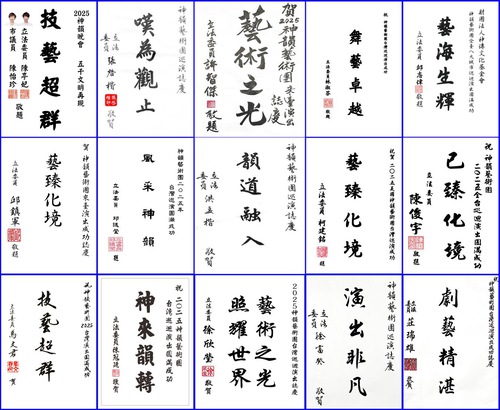 2025神韻晚會 五千文明再現
技藝超群
立法委員 陳亭妃
市議員 陳怡珍
敬題
神韻藝術團巡演誌慶
嘆為觀止
立法委員 張啓楷 敬賀
賀2025神韻藝術團來臺演出誌慶
藝術之光
立法委員許智傑 敬題
舞藝卓越
立法委員 林淑芬 敬題
財團法人神傳文化基金會
神韻藝術團全台八大城市巡演誌慶
藝海生輝
立法委員 邱志偉 敬題
賀神韻藝術團來臺演出誌慶
藝臻化境
立法委員 邱鎮軍 敬題
神韻藝術團二○二五年
台灣巡演圓滿成功
風采神韻
立法委員 邱議瑩 題
神韻藝術團巡演誌慶
韻道融入
立法委員 洪孟楷 敬賀
祝賀二○二五神韻藝術團台灣巡演成功
藝臻化境
立法委員 柯建銘 敬題
祝 神韻藝術團
二○二五全台巡迴演出圓滿成功
已臻化境
立法委員 陳俊宇 敬題
祝神韻藝術團2025台灣演出圓滿成功
技藝超群
立法委員 馬文君 賀
祝 二○二五神韻藝術團
台灣巡迴演出圓滿成功
神來韻轉
立法委員陳冠廷 敬賀
2025神韻藝術團台灣巡演誌慶
藝術之光
照耀世界
立法委員 徐欣瑩 敬賀
神韻藝術團巡演誌慶
演出非凡
立法委員 徐富癸 敬賀
劇藝精湛
立法委員 莊瑞雄